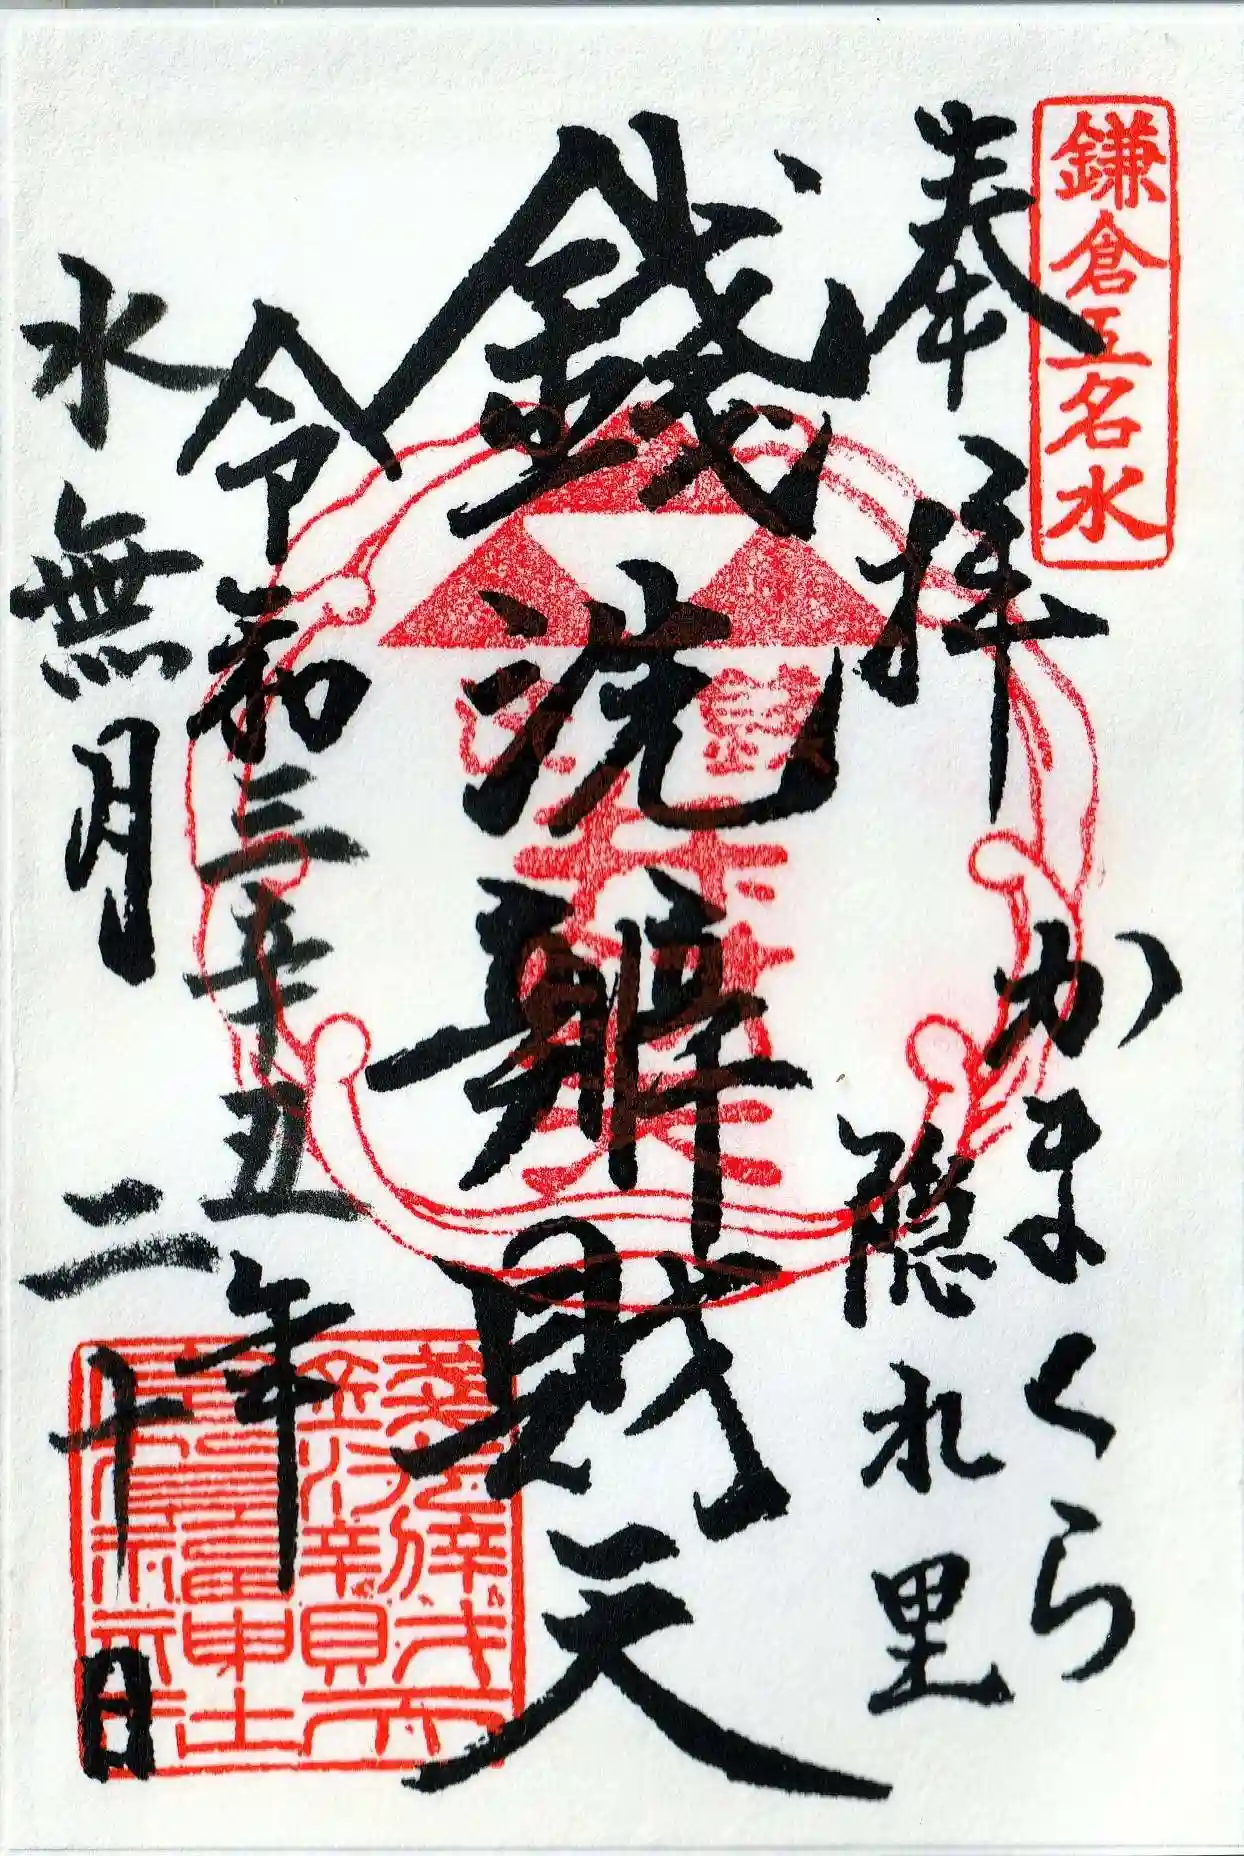 鎌倉五名水
奉拝
かまくら
隠れ里
銭洗辧財天
令和三辛丑年
水無月二十日